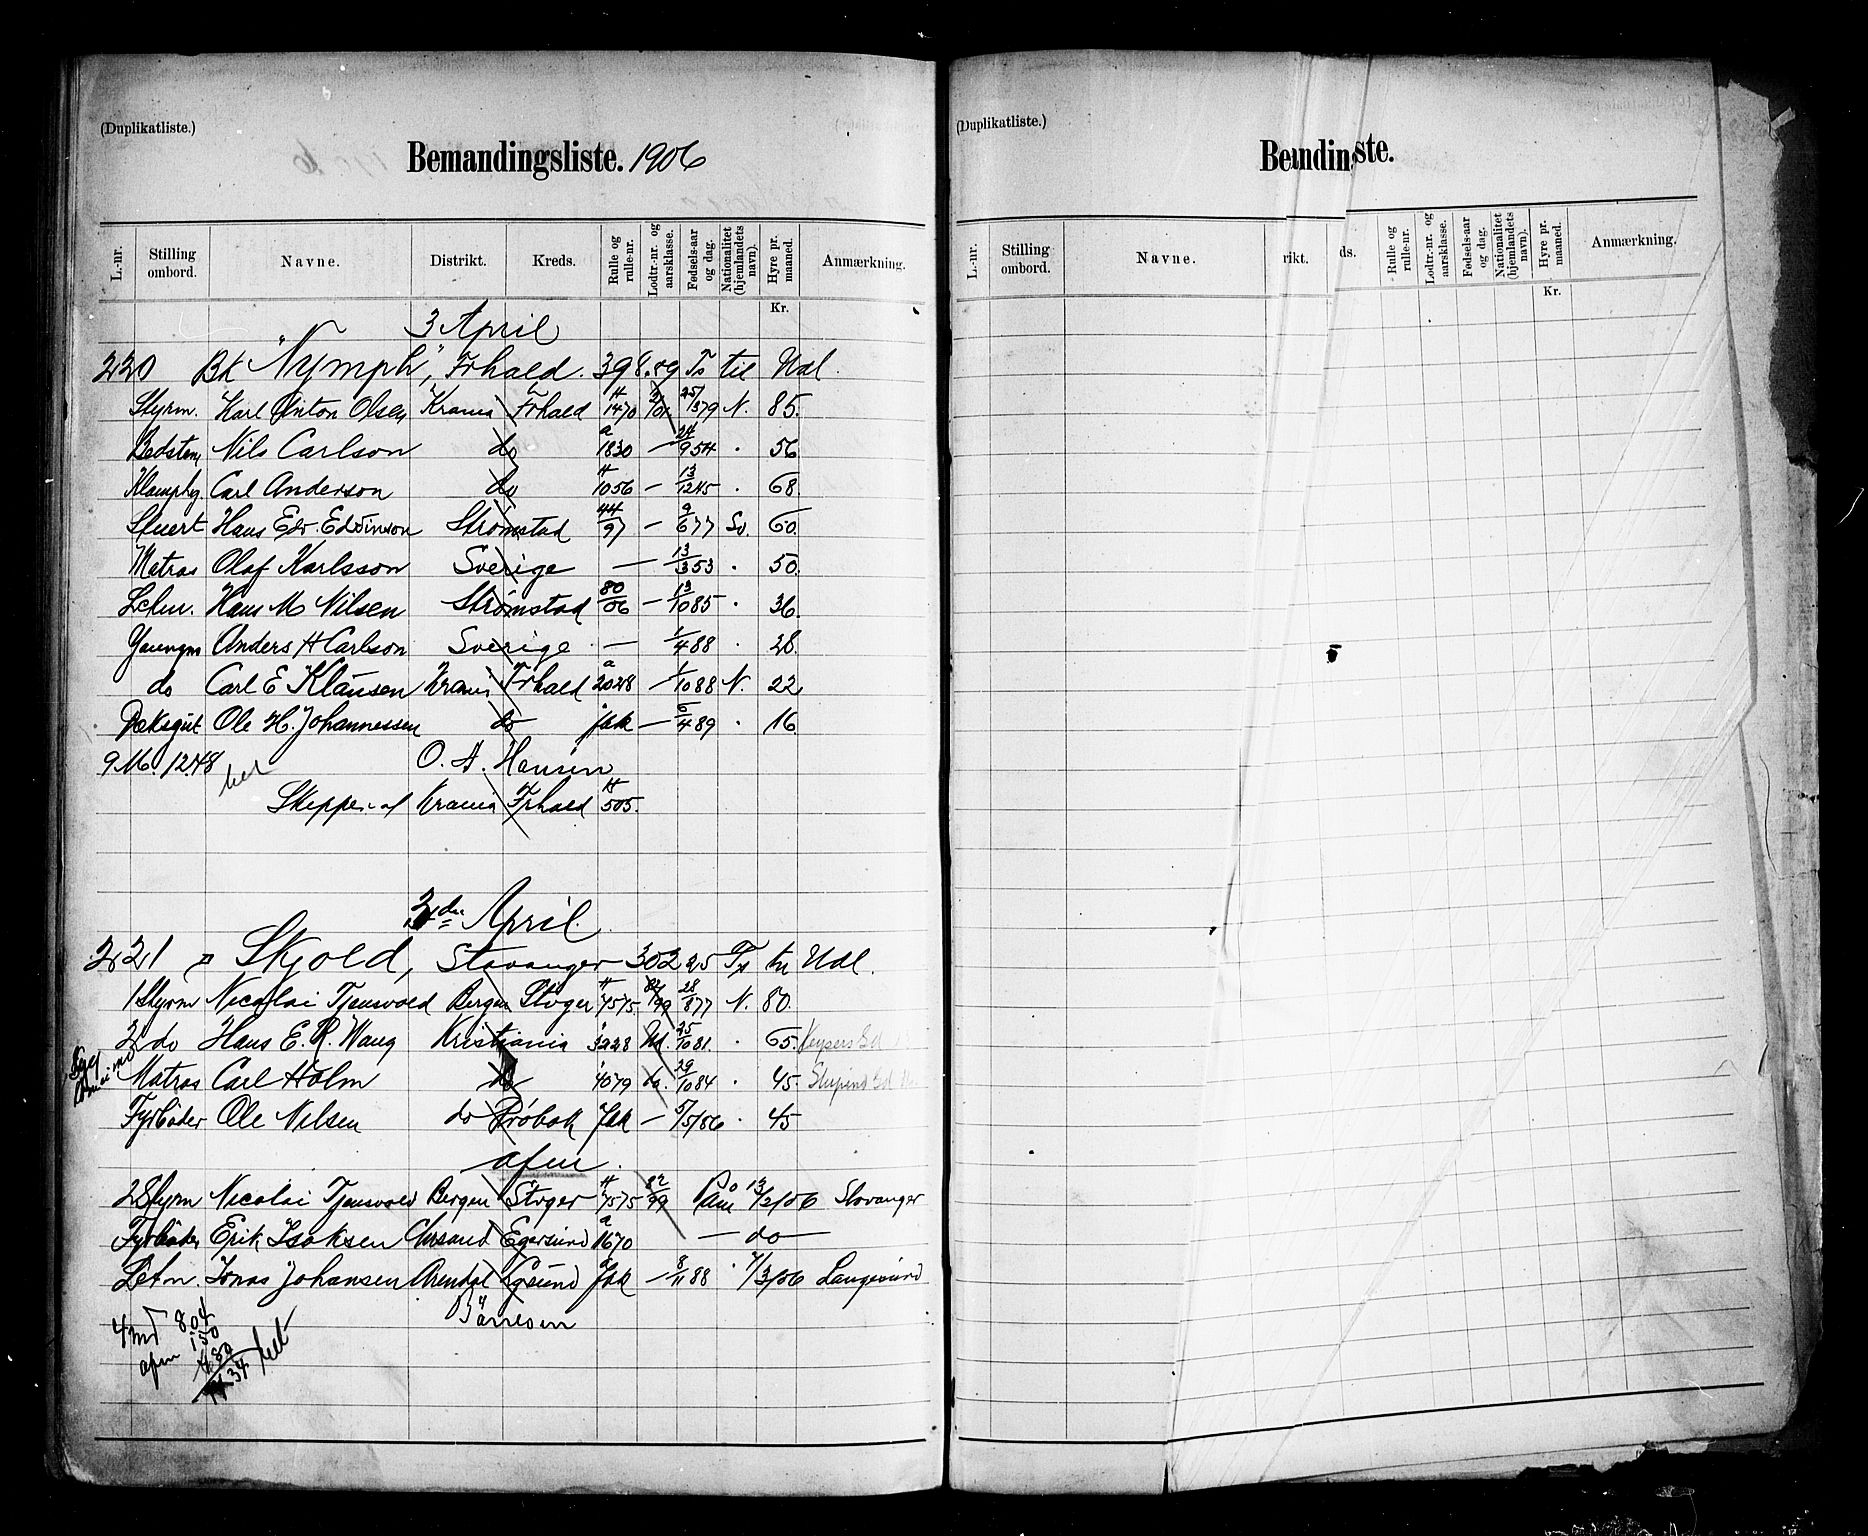 (Duplikatliste.)
Bemandingsliste. 1906
L.-nr. Stilling ombord. Navne. Distrikt. Kreds. Rulle og rulle-nr. Lodtr.-nr. og aarsklasse. Fødsels-aar og dag. Nationalitet (hjemlandets navn). Hyre pr. maaned. Anmærkning.
Kr.
3 April
220 Bk "Nymph", Frhald. 398.89 Ts til Udl.
Styrm. Karl Anton Olsen Krania Frhald H 1470 25/1 379 N. 85.
Bedstm Nils Carlson do a 1830 — 24/9 54 . 56
Carl Anderson do H 1056 — 13/12 45 . 68.
Stuert Hans Edv. Edvinson Strømstad 44/97 — 9/6 77 Sv. 60.
Matros Olaf Karlsson Sverige — 13/3 53 . 50.
Letm. Hans M Nilsen Strømstad 80/06 — 13/10 85 . 36
Youngm Anders H Carlson Sverige — 1/4 88 . 28.
do Carl E Klausen Krania Frhald a 2028 — 1/10 88 N. 22
Dæksgut Ole H. Johannessen do fsk — 6/4 89 . 16
9 M. 1248 O. A. Hansen
bet
Skipper af Krania Frhald H 505.
3die April.
221 Skjold, Stavanger 302 25 Ts til Udl.
1 Styrm Nicolai Tjensvold Bergen Stvger H 7575 82/99 28/8 77 N. 80.
2 do Hans E. R. Waug Kristiania 3228 Ud. 25/10 81. . 65. Keysers Gd
Matros Carl Holm do 4079 do. 29/10 84 . 45.
Fyrbøder Ole Nilsen do Drøbak fsk — 5/5/86 . 45
afm.
2 Styrm Nicolai Tjensvold Bergen Stvger H 7575 82/99 Paam 13/2/06 Stavanger
Fyrbøder Erik Isaksen Chrsand Egersund a 1670 — do —
Letm. Jonas Johansen Arendal fsk — 8/11 88 . 7/3/06 Langesund
Børresen
4 md 804
afm 150
480
1434 bet
(Duplikatliste.)
Bemndinste.
L.-nr. Stilling ombord. Navne. rikt. ds. Rulle og rulle-nr. Lodtr.-nr. og aarsklasse. Fødsels-aar og dag. Nationalitet (hjemlandets navn). Hyre pr. maaned. Anmærkning.
Kr.